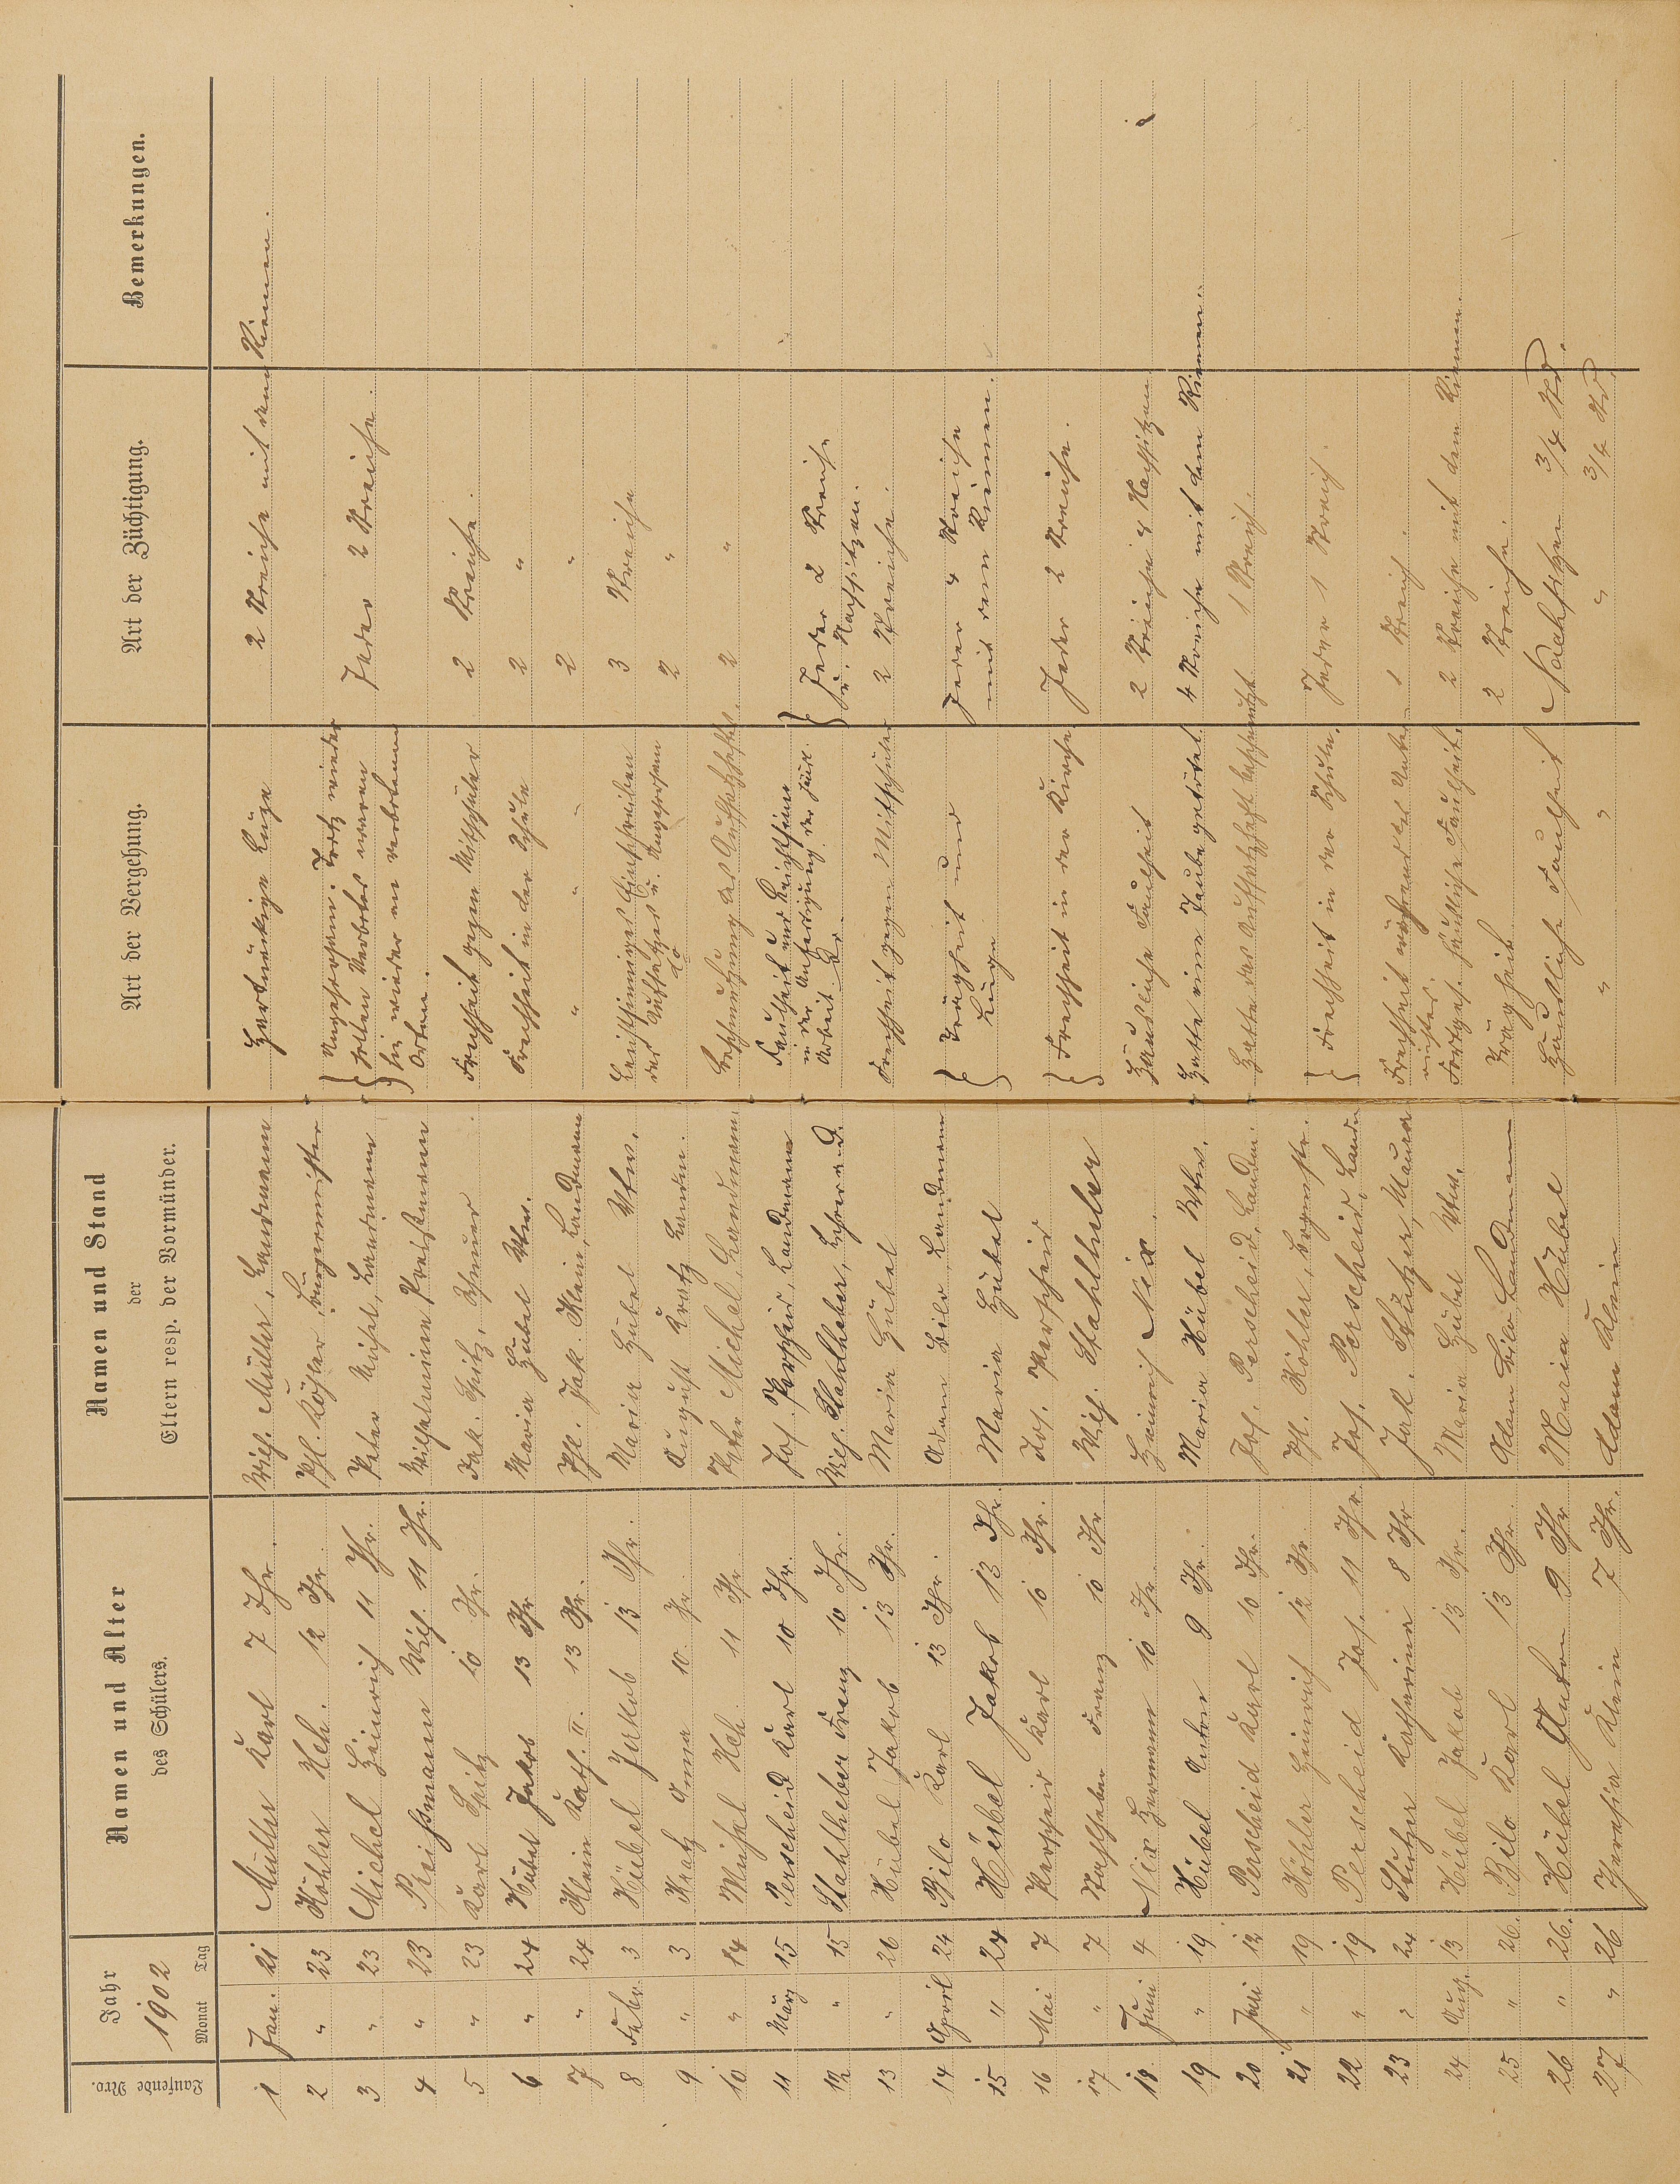 Laufende Nro.
Jahr
1902
Monat Tag
Namen und Alter
des Schülers.
Namen und Stand
der
Eltern resp. der Vormünder.
Art der Vergehung.
Art der Züchtigung.
Bemerkungen.
1 Jan. 21 Müller Karl 7 Jhr. Wilh. Müller, Landmann Hartnäckige Lüge 2 Streiche mit dem Riemen.
2 " 23 Köhler Hch. 12 Jhr. Phl. Köhler, Bürgermeister
3 " 23 Michel Heinrich 11 Jhr. Peter Michel, Landmann Jeder 2 Streiche.
4 " 23 Preißmann Wilh. 11 Jhr. Wilhelmine Preißmann
Ungehorsam. Trotz wieder-
holten Verbotes waren
sie wieder an verbotenen
Orten.
5 " 23 Karl Spitz 10 Jhr. Jak. Spitz, Frechheit gegen Mitschüler 2 Streiche.
6 " 24 Hübel Jakob 13 Jhr. Maria Hübel Wtw. Frechheit in der Schule 2 "
7 " 24 Klein Kath. II. 13 Jhr. Phl. Jak. Klein, Landmann " " " 2 "
8 Febr. 3 Hübel Jakob 13 Jhr. Maria Hübel Wtw. Leichtsinniges Einschreiben 3 Streiche
des Aufsatzes u. Ungehorsam
9 " 3 Kratz Anna 10 Jhr. August Kratz Landm. do 2 "
10 " 14 Michel Hch. 11 Jhr. Peter Michel, Landmann Beschmutzung des Aufsatzheftes. 2 "
11 März 15 Perscheid Karl 10 Jhr. Jos. Perscheid, Landmann Faulheit und Leichtsinn
in der Anfertigung der häusl.
Arbeit. Jeder 2 Streiche
u. Nachsitzen.
12 " 15 Stahlheber Franz 10 Jhr. Wilh. Stahlheber,
13 " 26 Hübel Jakob 13 Jhr. Maria Hübel Frechheit gegen Mitschüler 2 Streiche.
14 April 24 Bilo Karl 13 Jhr. Adam Bilo, Landmann Trägheit und Jeder 4 Streiche
15 " 24 Hübel Jakob 13 Jhr. Maria Hübel Lüge mit dem Riemen.
16 Mai 7 Perscheid Karl 10 Jhr. Jos. Perscheid Frechheit in der Kirche Jeder 2 Streiche.
17 " 7 Stahlheber Franz 10 Jhr. Wilh. Stahlheber
18 Juni 4 Nix Hermann 10 Jhr. Heinrich Nix. Häusliche Faulheit 2 Streiche & Nachsitzen
19 " 19 Hübel Anton 9 Jhr. Maria Hübel Wtw. Hatte eine Taube getötet 4 Streiche mit dem Riemen.
20 Juli 12 Perscheid Karl 10 Jhr. Jos. Perscheid, Landm. Hatte das Aufsatzheft beschmutzt 1 Streich.
21 " 19 Köhler Heinrich 12 Jhr. Ph. Köhler, Frechheit in der Schule. Jeder 1 Streich.
22 " 19 Perscheid Jos. 11 Jhr. Jos. Perscheid, Landm.
23 " 24 Stützer Katharina 8 Jhr. Jak. Stützer, Maurer Frechheit während des Unter-
richtes. 1 Streich.
24 Aug. 13 Hübel Jakob 13 Jhr. Maria Hübel Wtw. Fortges. häusliche Faulheit. 2 Streiche mit dem Riemen.
25 " 26. Bilo Karl 13 Jhr. Adam Bilo, Landmann Trägheit 2 Streiche.
26 " 26. Hübel Anton 9 Jhr. Maria Hübel Häusliche Faulheit Nachsitzen 3/4 Std.
27 " 26 Theresia Klein 7 Jhr. Adam Klein " " " 3/4 Std.